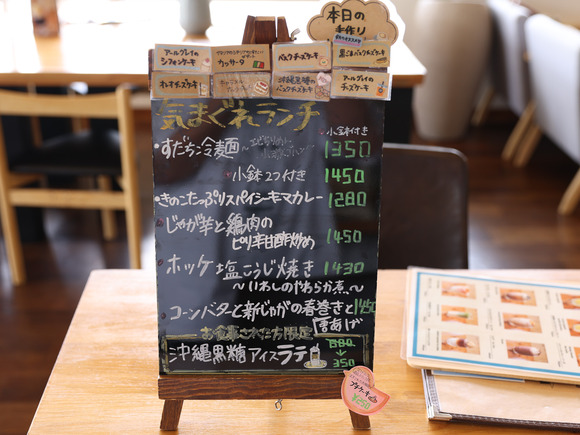 本日の
手作り
アールグレイの
シフォンケーキ
カッサータ
バスクチーズケーキ
黒ごまバスクチーズケーキ
沖縄黒糖の
バスクチーズケーキ
アールグレイの
チーズケーキ
気まぐれランチ
・すだち冷麺
小鉢付き
1350
小鉢2つ付き 1450
・きのこたっぷりスパイシーキマカレー 1280
・じゃが芋と鶏肉の
ピリ辛甘酢炒め 1450
ホッケ塩こうじ焼き 1430
〜いわしのやわらか煮〜
コーンバターと新じゃがの春巻きと 1450
厚あげ
お食事された方限定
沖縄黒糖アイスラテ
350
プチケーキ